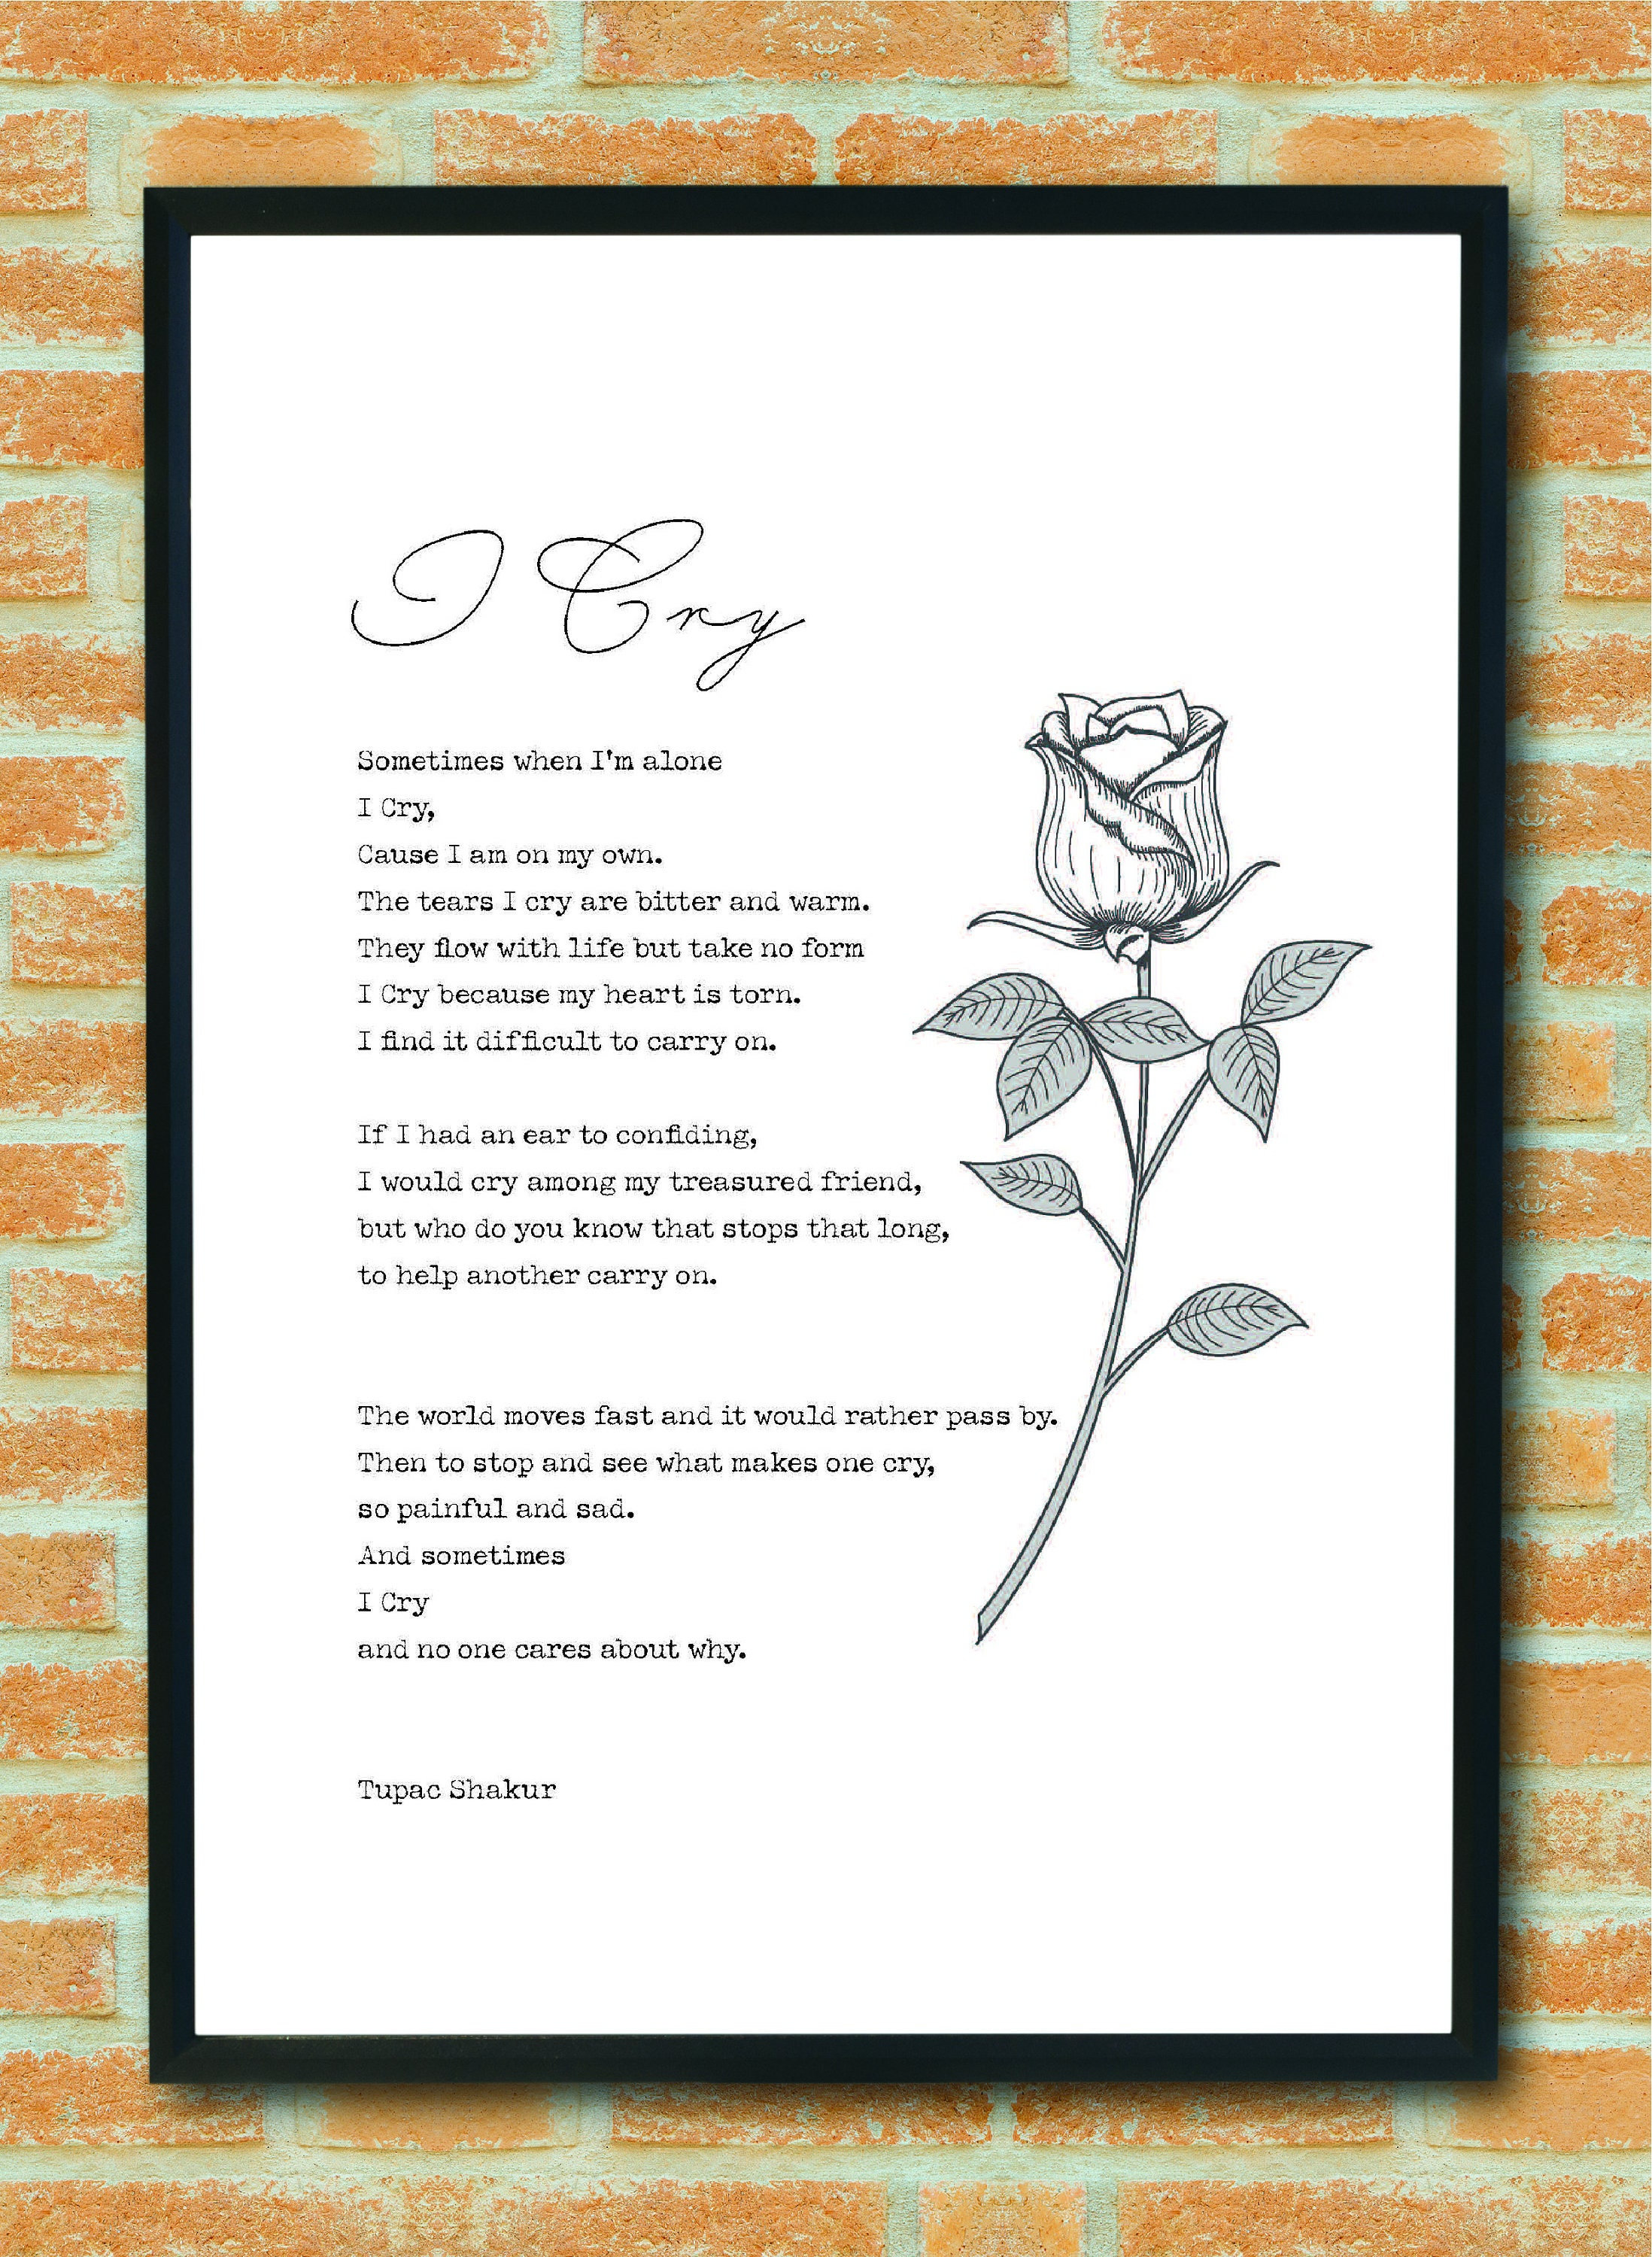 I Cry
Sometimes when I'm alone
I Cry,
Cause I am on my own.
The tears I cry are bitter and warm.
They flow with life but take no form
I Cry because my heart is torn.
I find it difficult to carry on.
If I had an ear to confiding,
I would cry among my treasured friend,
but who do you know that stops that long,
to help another carry on.
The world moves fast and it would rather pass by.
Then to stop and see what makes one cry,
so painful and sad.
And sometimes
I Cry
and no one cares about why.
Tupac Shakur